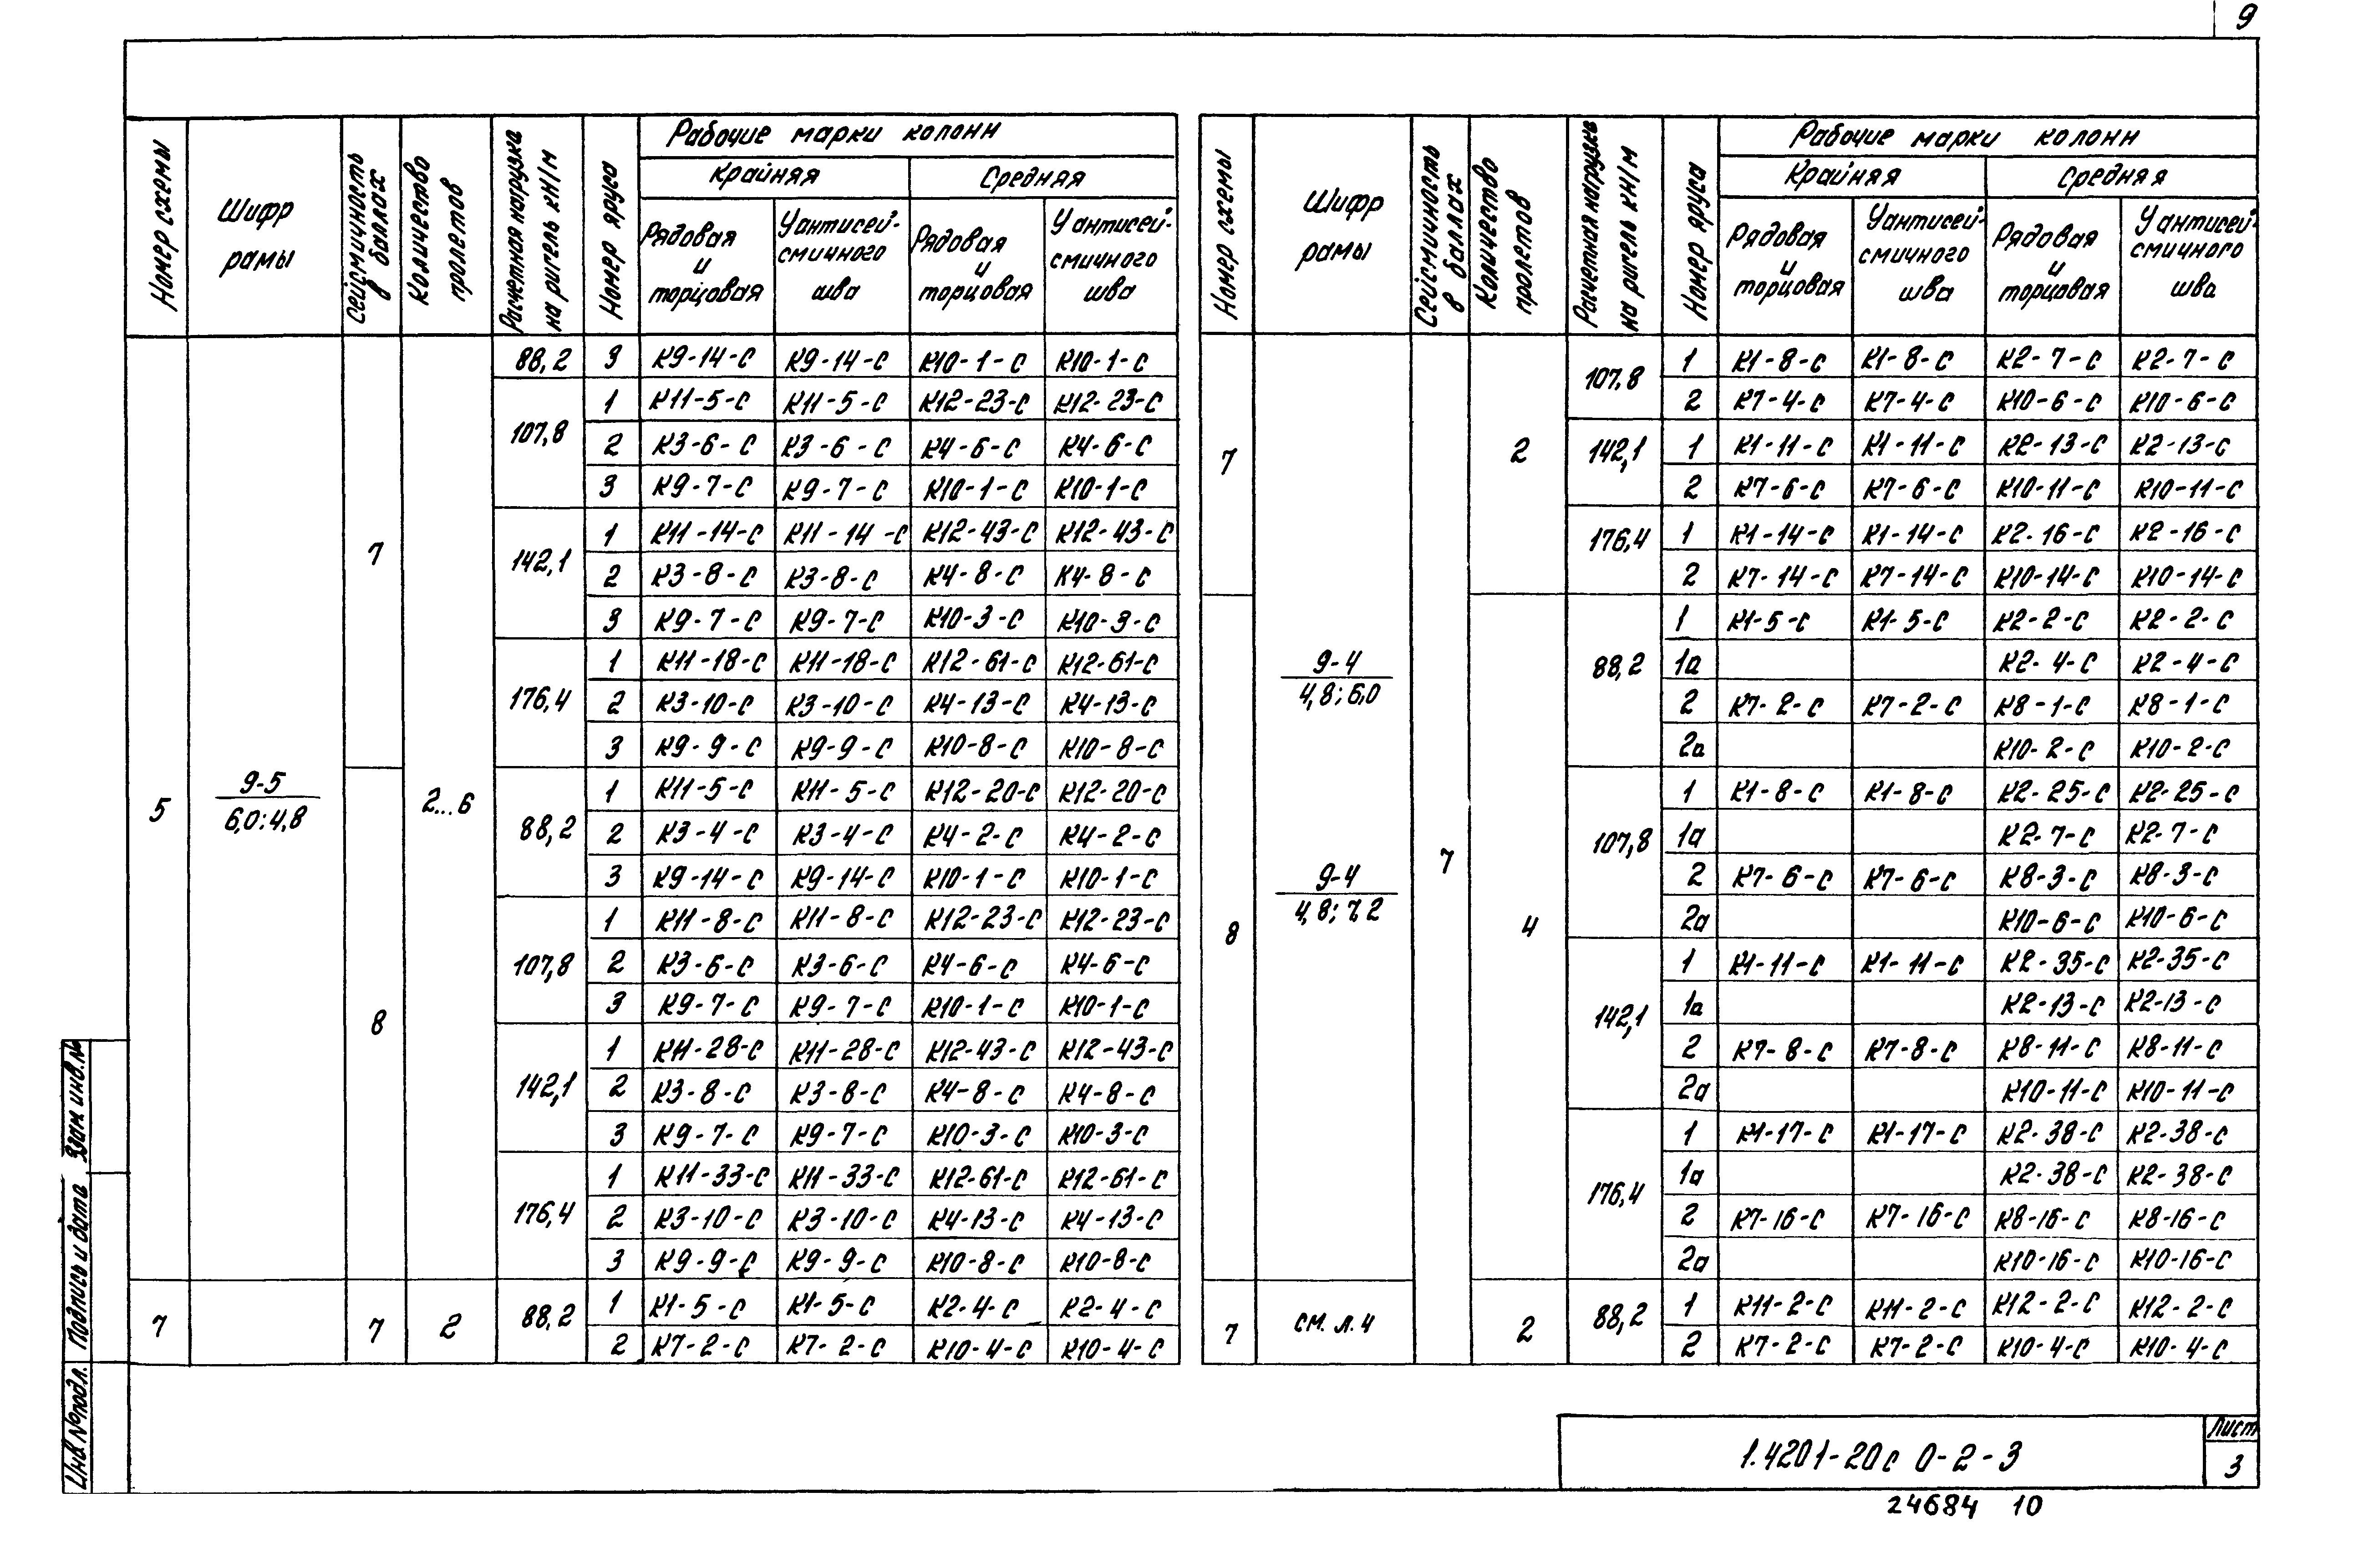 9
Номер схемы
Шифр рамы
Сейсмичность в баллах
Количество пролетов
Расчетная нагрузка на ригель кН/м
Номер яруса
Рабочие марки колонн
Крайняя Средняя
Рядовая и торцовая
У антисейсмичного шва
Рядовая и торцовая
У антисейсмичного шва
5 9-5 6,0:4,8 2...6
7
88,2 3 К9-14-С К9-14-С К10-1-С К10-1-С
107,8 1 К11-5-С К11-5-С К12-23-С К12-23-С
2 К3-6-С К3-6-С К4-6-С К4-6-С
3 К9-7-С К9-7-С К10-1-С К10-1-С
142,1 1 К11-14-С К11-14-С К12-43-С К12-43-С
2 К3-8-С К3-8-С К4-8-С К4-8-С
3 К9-7-С К9-7-С К10-3-С К10-3-С
176,4 1 К11-18-С К11-18-С К12-61-С К12-61-С
2 К3-10-С К3-10-С К4-13-С К4-13-С
3 К9-9-С К9-9-С К10-8-С К10-8-С
8
88,2 1 К11-5-С К11-5-С К12-20-С К12-20-С
2 К3-4-С К3-4-С К4-2-С К4-2-С
3 К9-14-С К9-14-С К10-1-С К10-1-С
107,8 1 К11-8-С К11-8-С К12-23-С К12-23-С
2 К3-6-С К3-6-С К4-6-С К4-6-С
3 К9-7-С К9-7-С К10-1-С К10-1-С
142,1 1 К11-28-С К11-28-С К12-43-С К12-43-С
2 К3-8-С К3-8-С К4-8-С К4-8-С
3 К9-7-С К9-7-С К10-3-С К10-3-С
176,4 1 К11-33-С К11-33-С К12-61-С К12-61-С
2 К3-10-С К3-10-С К4-13-С К4-13-С
3 К9-9-С К9-9-С К10-8-С К10-8-С
7 7 2 88,2 1 К1-5-С К1-5-С К2-4-С К2-4-С
2 К7-2-С К7-2-С К10-4-С К10-4-С
Номер схемы
Шифр рамы
Сейсмичность в баллах
Количество пролетов
Расчетная нагрузка на ригель кН/м
Номер яруса
Рабочие марки колонн
Крайняя Средняя
Рядовая и торцовая
У антисейсмичного шва
Рядовая и торцовая
У антисейсмичного шва
7 2
107,8 1 К1-8-С К1-8-С К2-7-С К2-7-С
2 К7-4-С К7-4-С К10-6-С К10-6-С
142,1 1 К1-11-С К1-11-С К2-13-С К2-13-С
2 К7-6-С К7-6-С К10-11-С К10-11-С
176,4 1 К1-14-С К1-14-С К2-16-С К2-16-С
2 К7-14-С К7-14-С К10-14-С К10-14-С
9-4 4,8; 6,0
9-4 4,8; 7,2
7
8 4
88,2 1 К1-5-С К1-5-С К2-2-С К2-2-С
1а К2-4-С К2-4-С
2 К7-2-С К7-2-С К8-1-С К8-1-С
2а К10-2-С К10-2-С
107,8 1 К1-8-С К1-8-С К2-25-С К2-25-С
1а К2-7-С К2-7-С
2 К7-6-С К7-6-С К8-3-С К8-3-С
2а К10-6-С К10-6-С
142,1 1 К1-11-С К1-11-С К2-35-С К2-35-С
1а К2-13-С К2-13-С
2 К7-8-С К7-8-С К8-11-С К8-11-С
2а К10-11-С К10-11-С
176,4 1 К1-17-С К1-17-С К2-38-С К2-38-С
1а К2-38-С К2-38-С
2 К7-16-С К7-16-С К8-16-С К8-16-С
2а К10-16-С К10-16-С
7 см. л. 4 2 88,2 1 К11-2-С К11-2-С К12-2-С К12-2-С
2 К7-2-С К7-2-С К10-4-С К10-4-С
Взам инв.№
Подпись и дата
Инв №подл.
1.4201-20с 0-2-3
Лист
3
24684 10